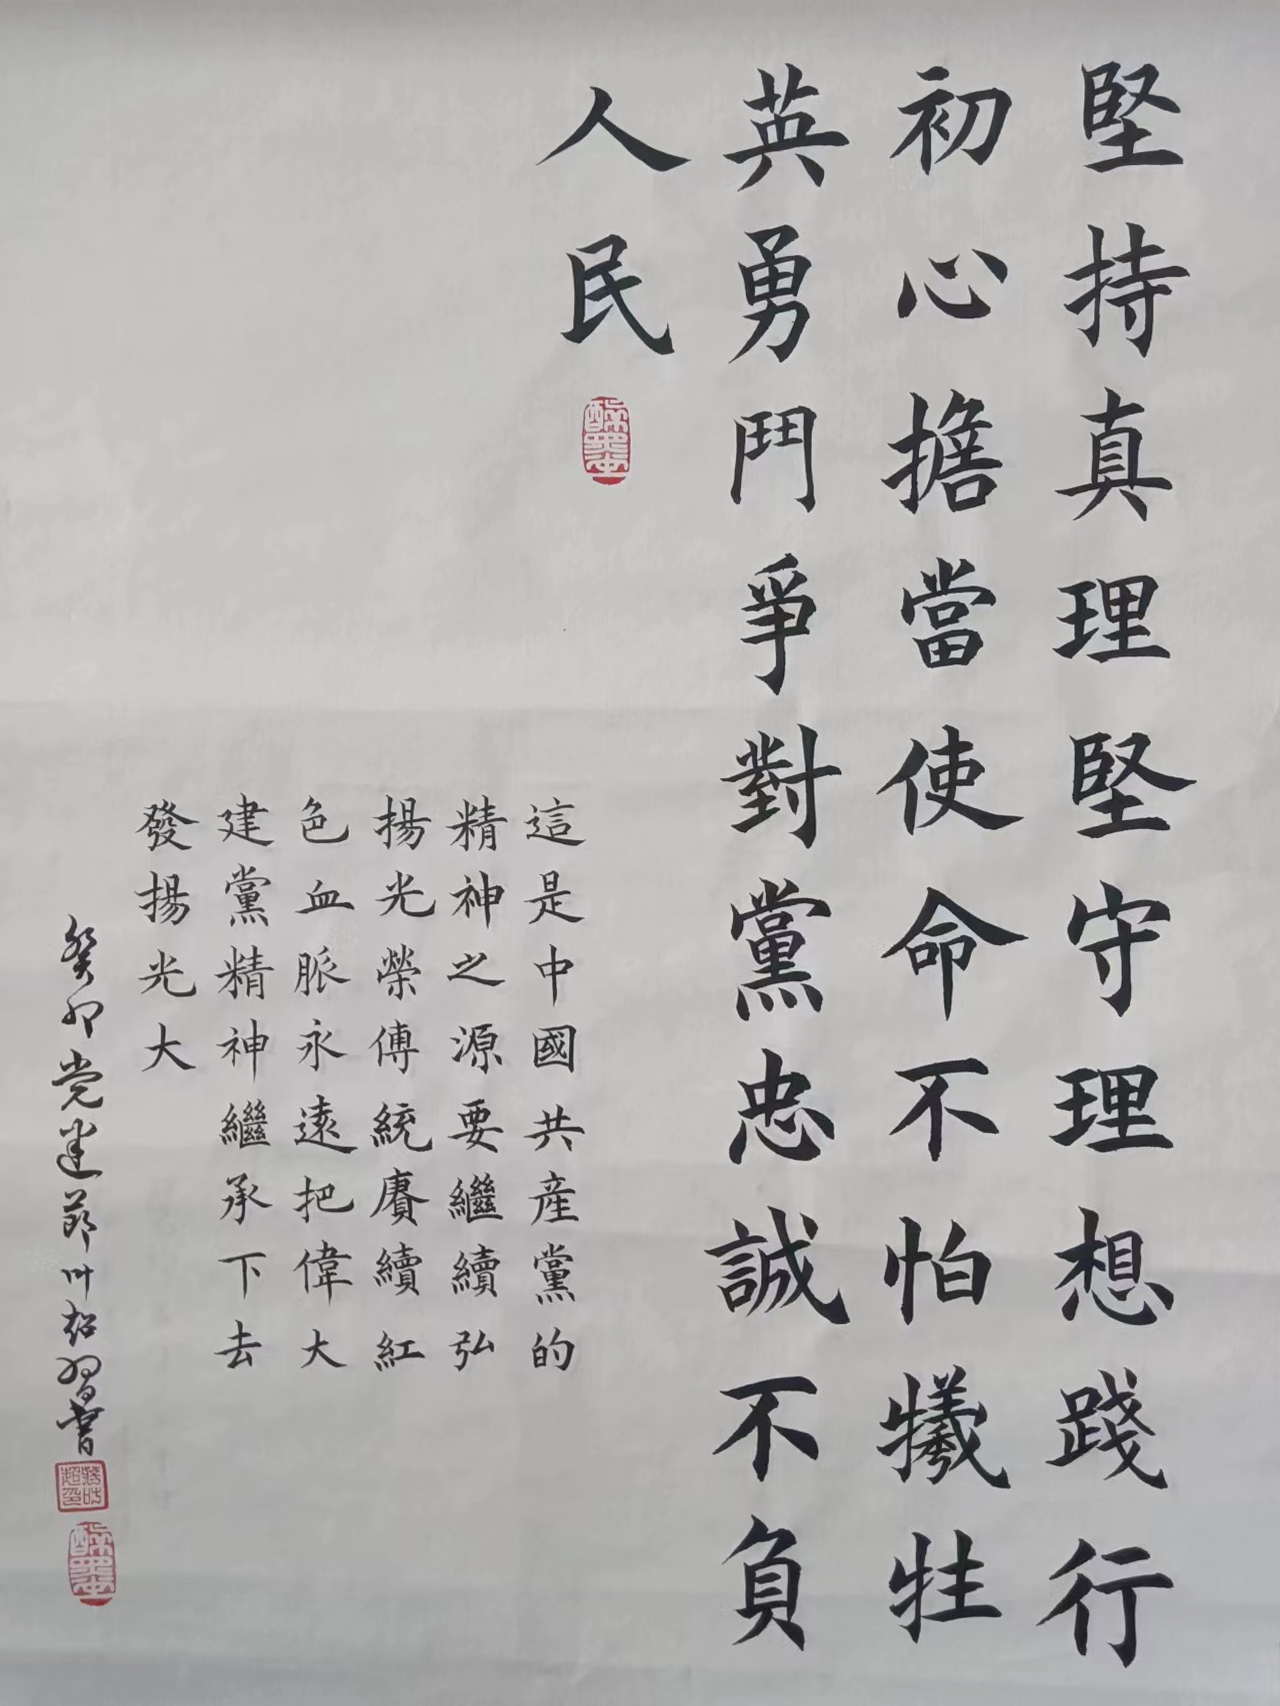 堅持真理堅守理想踐行
初心擔當使命不怕犧牲
英勇鬥爭對黨忠誠不負
人民
這是中國共產黨的
精神之源要繼續弘
揚光榮傳統賡續紅
色血脈永遠把偉大
建黨精神繼承下去
發揚光大
癸卯党建節叶超習書